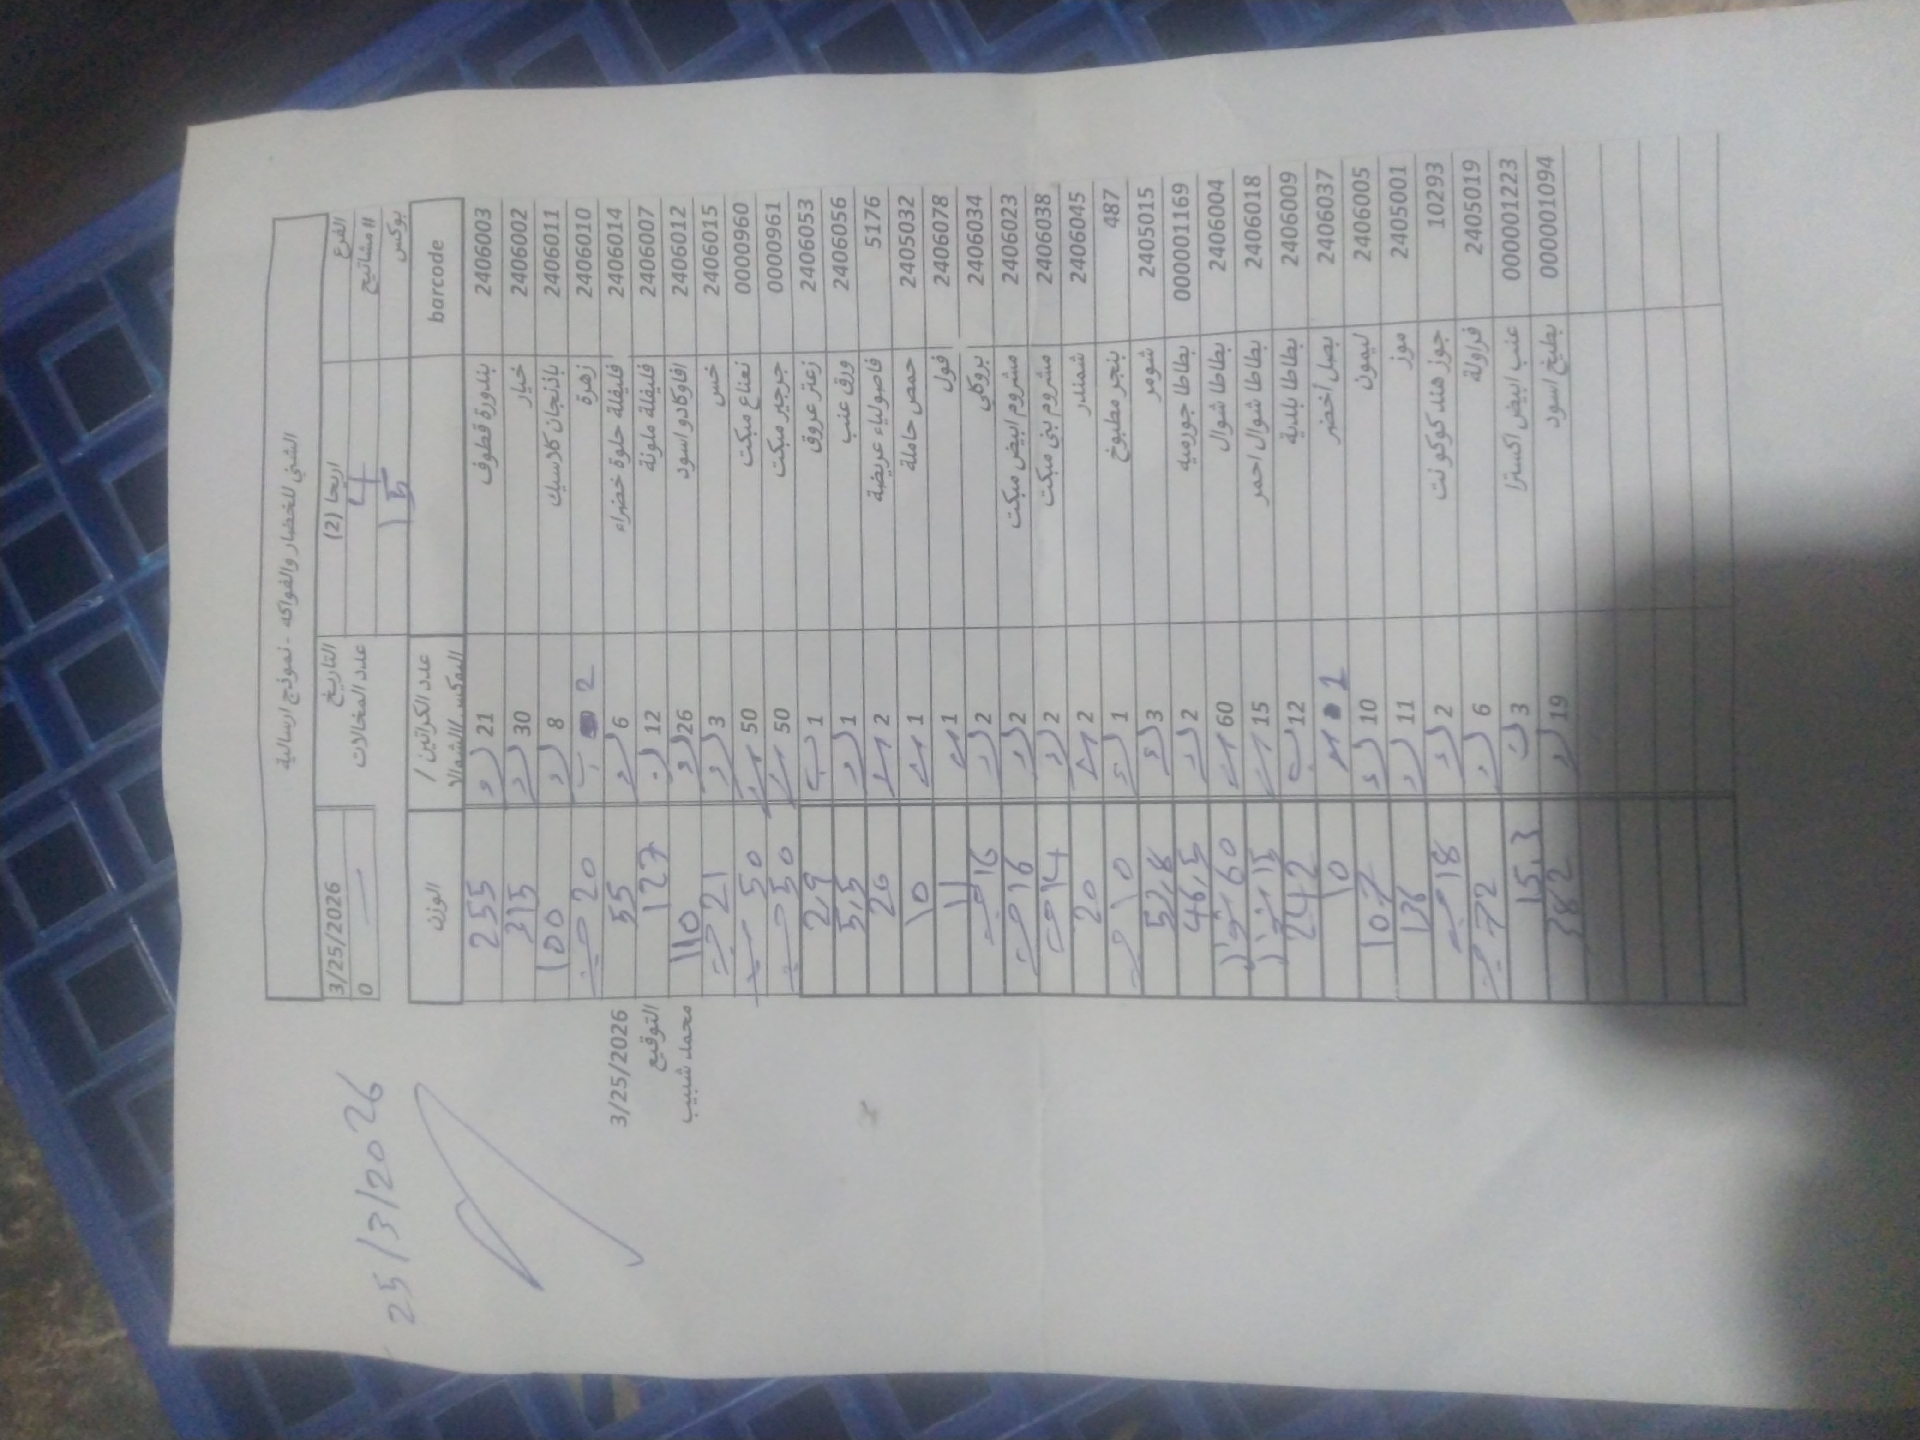 الشني للخضار والفواكه - نموذج ارسالية
الفرع اريحا (2) التاريخ 3/25/2026
# مشاتيح 4 عدد المخالات 0
بوكس 15
barcode عدد الكراتين / البوكس / الشوالات الوزن
2406003 بندورة قطوف 21 255
2406002 خيار 30 315
2406011 باذنجان كلاسيك 8 100
2406010 زهرة 2 20
2406014 فليفلة حلوة خضراء 6 55
2406007 فليفلة ملونة 12 127
2406012 افاوكادو اسود 26 110
2406015 خس 3 21
0000960 نعناع مبكت 50 50
0000961 جرجير مبكت 50 50
2406053 زعتر عروق 1 2,9
2406056 ورق عنب 1 5,5
5176 فاصولياء عريضة 2 20
2405032 حمص حاملة 1 10
2406078 فول 1 11
2406034 بروكلي 2 16
2406023 مشروم ابيض مبكت 2 16
2406038 مشروم بني مبكت 2 14
2406045 شمندر 2 20
487 بنجر مطبوخ 1 10
2405015 شومر 3 52,8
000001169 بطاطا جورميه 2 46,5
2406004 بطاطا شوال 60 60
2406018 بطاطا شوال احمر 15 15
2406009 بطاطا بلدية 12 242
2406037 بصل اخضر 1 10
2406005 ليمون 10 107
2405001 موز 11 136
10293 جوز هند كوكونت 2 18
2405019 فراولة 6 72
000001223 عنب ابيض اكسترا 3 15.3
000001094 بطيخ اسود 19 382
3/25/2026
التوقيع
محمد شبيب
25/3/2026